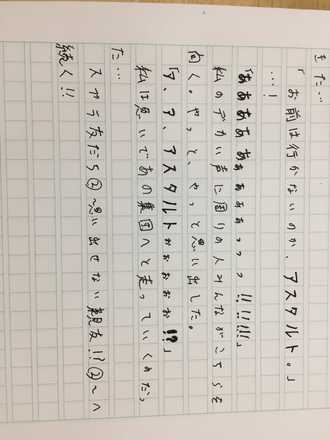 きた…
「お前は行かないのか、アスタルト。」
…！
「あああああぁぁぁぁぁっっっ!!!!!!」
私のデカい声に周りの人みんながこちらを
向く。やっと、やっと思い出した。
「ア、ア、アスタルトがぉぉぉぉ!?」
私は急いであの集団へと走っていくのだっ
た…
スカラ友だち②〜思い出せない親友!?②〜へ
続く!!